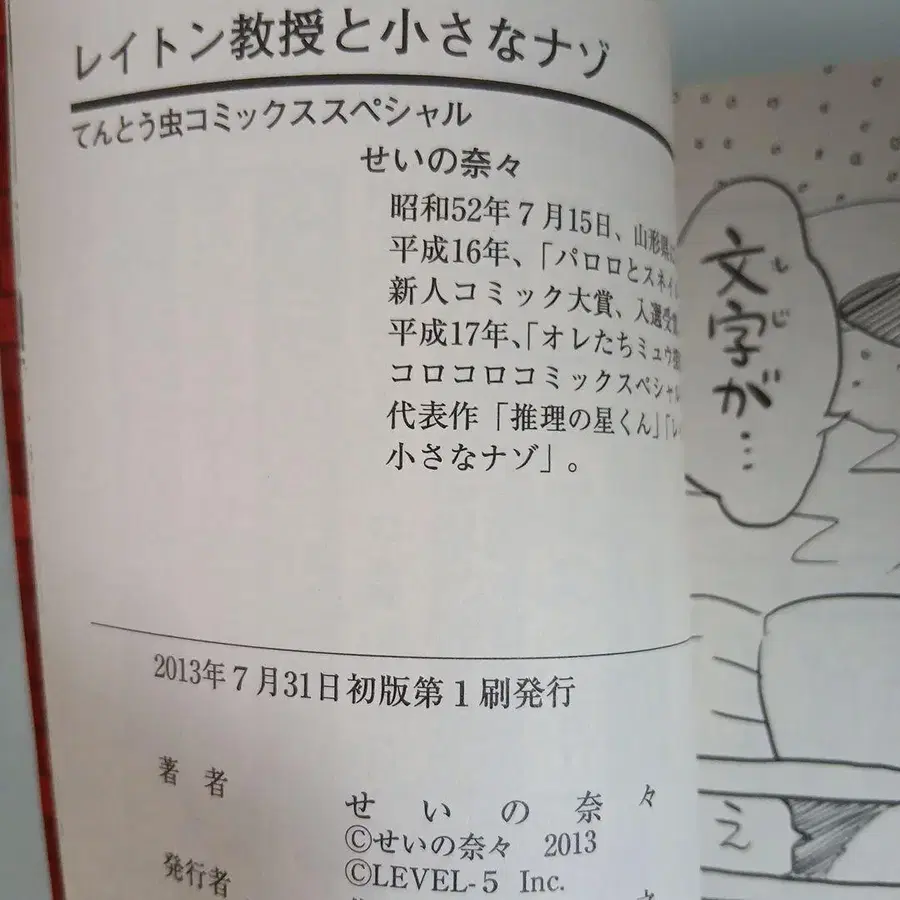 レイトン教授と小さなナゾ
てんとう虫コミックススペシャル
せいの奈々
昭和52年7月15日、山形県
平成16年、「パロロとスネイ
新人コミック大賞、入選受賞
平成17年、「オレたちミュウ
コロコロコミックスペシャル
代表作「推理の星くん」「レイ
小さなナゾ」。
2013年7月31日初版第1刷発行
著者 せいの奈々
©せいの奈々 2013
©LEVEL-5 Inc.
発行者
文字が…
え